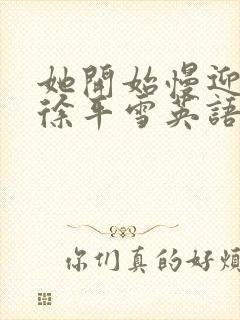 她開始慢迎
徐平雪英語
你们真的好煩